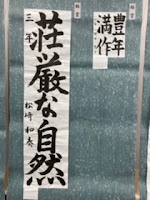 荘厳な自然
三年 松崎和奏
豊年
満作